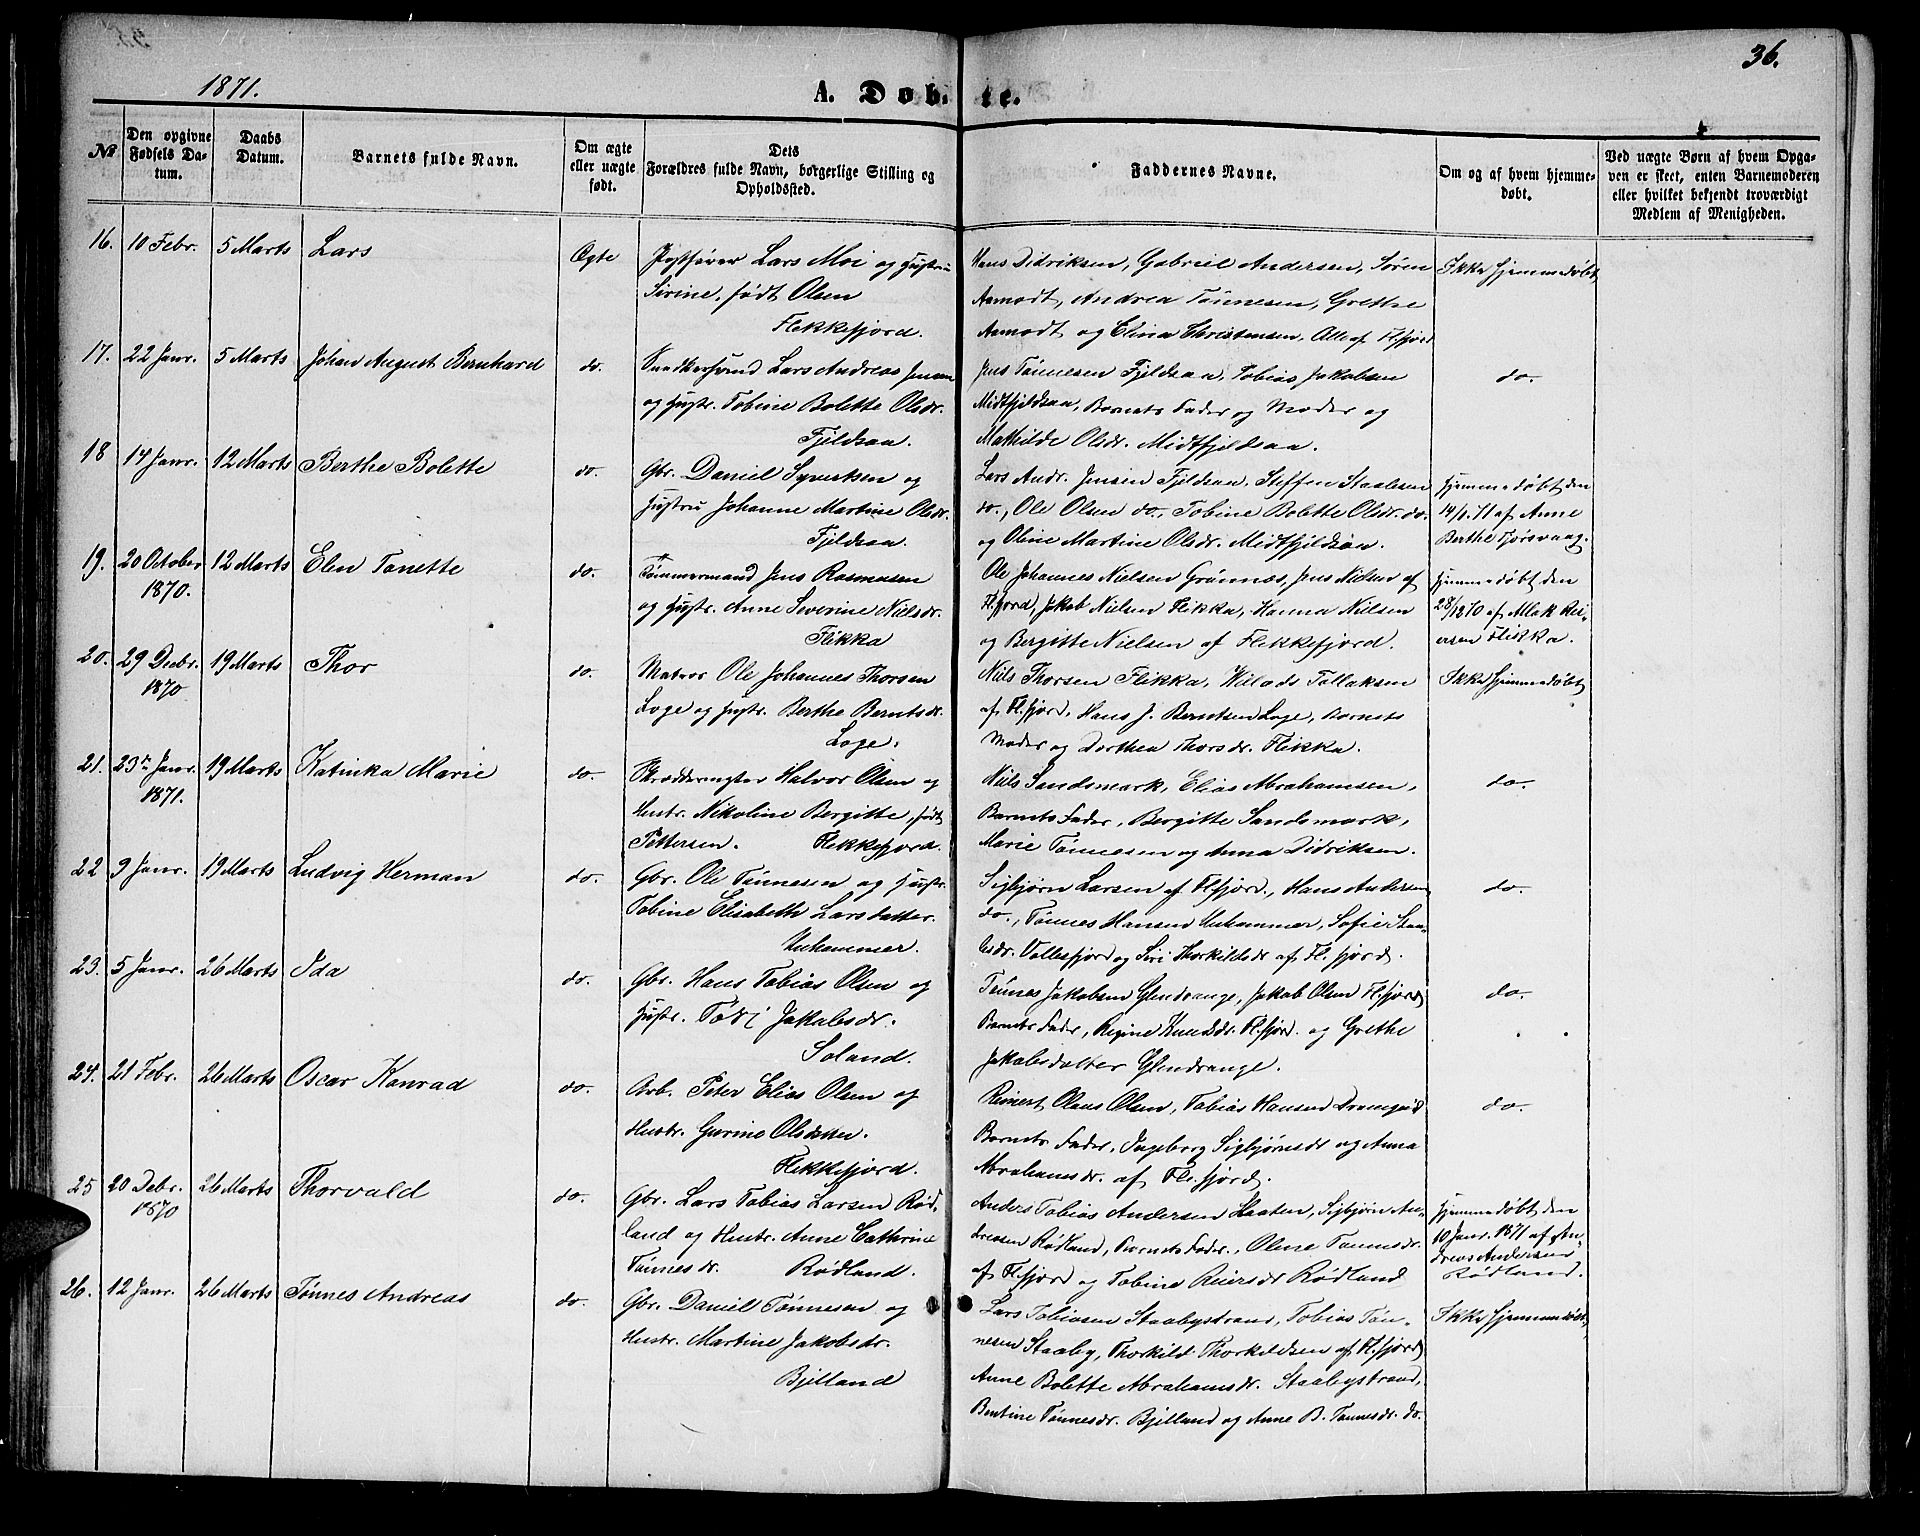 36.
1871.
A. Døbte.
№
Den opgivne Fødsels Datum.
Daabs Datum.
Barnets fulde Navn.
Om ægte eller uægte født.
Dets Forældres fulde Navn, borgerlige Stilling og Opholdssted.
Faddernes Navne.
Om og af hvem hjemmedøbt.
Ved uægte Børn af hvem Opgaven er skeet, enten Barnemoderen eller hvilket bekjendt troværdigt Medlem af Menigheden.
16. 10 Febr. 5 Marts Lars Ægte
Lars Moi og Hustru
Sirine, født Olsen
Flekkefjord.
Hans Didriksen, Gabriel Andersen, Søren
Aamodt, Andrea Tønnesen, Grethe
Aamodt og Elina Christensen, Alle af Fl.fjord
Ikke hjemmedøbt
17. 22 Janr. 5 Marts Johan August Bernhard do.
Snedkersvend Lars Andreas Jensen
og Hustr. Tobine Bolette Olsdr.
Fjeldsaa.
Jens Tønnesen Fjeldsaa, Tobias Jakobsen
Midtfjeldsaa, Barnets Fader og Moder og
Mathilde Olsdr. Midtfjeldsaa.
do.
18 14 Janr. 12 Marts Berthe Bolette do.
Gbr. Daniel Syvertsen og
Hustru Johanne Martine Olsdr.
Fjeldsaa.
Lars Andr. Jensen Fjeldsaa, Steffen Staalesen
do., Ole Olsen do., Tobine Bolette Olsdr. do.
og Oline Martine Olsdr. Midtfjeldsaa.
Hjemmedøbt den
14/1 71 af Anne
Berthe Tjorsvaag.
19. 20 October 12 Marts Elen Tonette do.
1870.
Tømmermand Jens Rasmusen
og Hustr. Anne Severine Nielsdr.
Flikka
Ole Johannes Nielsen Grønnes, Jens Nielsen af
Fl.fjord, Jakob Nielsen Flikka, Hanna Nielsen
og Bergitte Nielsen af Flekkefjord.
Hjemmedøbt den
28/12 70 af Reiersen Flikka.
20. 29 Decbr. 19 Marts Thor do.
1870
Matros Ole Johannes Thorsen
Loge og Hustr. Berthe Berntsdr.
Loge.
Niels Thorsen Flikka, Willads Tollaksen
af Fl.fjord, Hans J. Berntsen Loge, Barnets
Moder og Dorthea Thorsdr. Flikka.
Ikke hjemmedøbt
21. 23de Janr. 19 Marts Katinka Marie do.
1871.
Halvor Olsen og
Hustr. Nikoline Bergitte, født
Pettersen. Flekkefjord.
Niels Sandsmark, Elias Abrahamsen,
Barnets Fader, Bergitte Sandsmark,
Marie Tønnesen og Anna Didriksen.
do.
22 9 Janr. 19 Marts Ludvig Herman do.
Gbr. Ole Tønnesen og Hustr.
Tobine Elisabeth Larsdatter.
Uuhammer.
Sigbjørn Larsen af Fl.fjord, Hans Andersen
do., Tønnes Hansen Uuhammer, Sofie Staalesdr. Vollesfjord og Siri Thorkildsdr af Fl.fjord.
do.
23. 5 Janr. 26 Marts Ida do.
Gbr. Hans Tobias Olsen og
Hustr. Jakobsdr.
Soland.
Tønnes Jakobsen Glendrange, Jakob Olsen Fl.fjord
Barnets Fader, Regine Knudsdr. Fl.fjord. og Grethe
Jakobsdatter Glendrange.
do.
24. 21 Febr. 26 Marts Oscar Konrad do.
Arb. Peter Elias Olsen og
Hustr. Gurine Olsdatter.
Flekkefjord.
Reinert Olaus Olsen, Tobias Hansen
Barnets Fader, Ingeborg Sigbjørnsdr og Anna
Abrahamsdr. af Fl.fjord.
do.
25 20 Debr. 26 Marts Thorvald do.
1870
Gbr. Lars Tobias Larsen Rødland og Hustr. Anne Cathrine
Tønnesdr. Rødland.
Anders Tobias Andersen Haaten, Sigbjørn Andreasen Rødland, Barnets Fader, Oline Tønnesdr.
af Fl.fjord og Tobine Reiersdr Rødland
Hjemmedøbt den
10 Janr. 1871 af Andreas Andersen
Rødland.
26. 12 Janr. 26 Marts Tønnes Andreas do.
Gbr. Daniel Tønnesen og
Hustr. Martine Jakobsdr.
Bjelland
Lars Tobiasen Staabystrand, Tobias Tønnesen Staaby, Thorkild Thorkildsen af Fl.fjord
Anne Bolette Abrahamsdr. Staabystrand,
Bentine Tønnesdr. Bjelland og Anne B. Tønnesdr. do.
Ikke hjemmedøbt